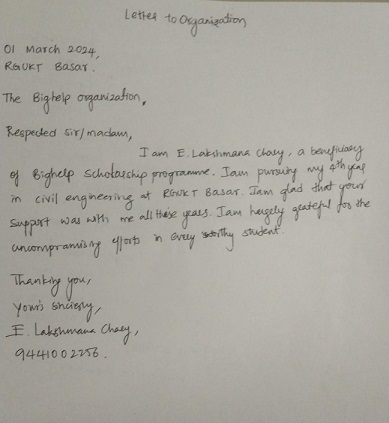 Letter to Organization
01 March 2024,
RGUKT Basar.
The Bighelp organization,
Respected sir/madam,
I am E. Lakshmana Chary, a beneficiary
of Bighelp Scholarship programme. I am pursuing my 4th year
in civil engineering at RGUKT Basar. I am glad that your
support was with me all these years. I am hugely grateful for the
uncompramising efforts in every worthy student.
Thanking you,
Yours sincerly,
E. Lakshmana Chary,
9441002256.